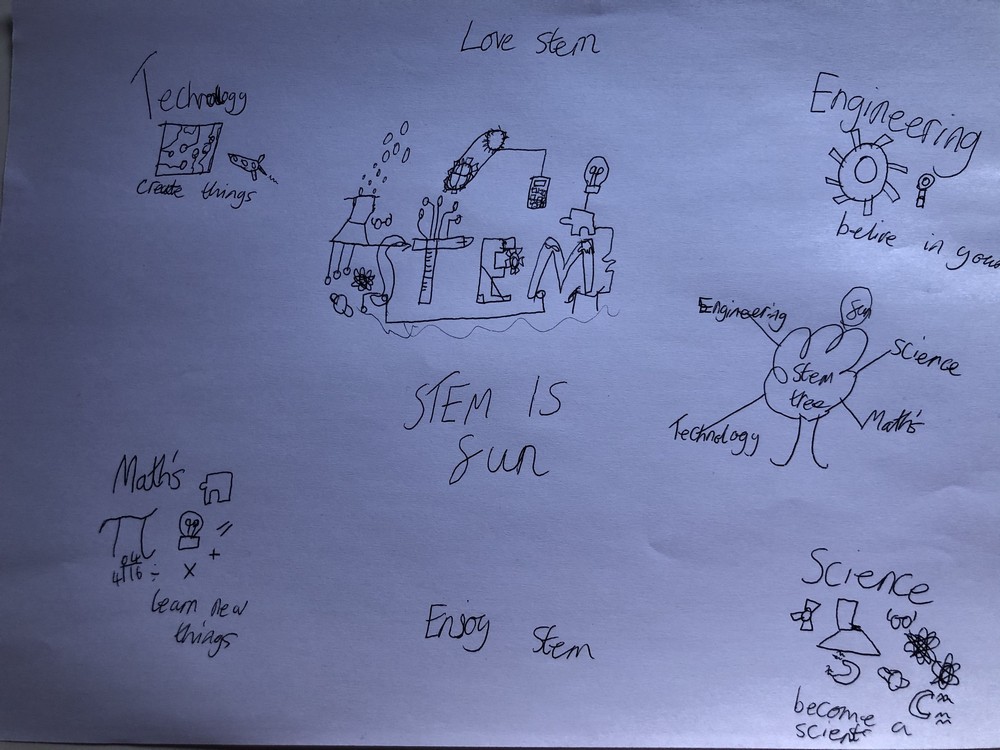 Love stem
Technology
create things
Engineering
belive in your
STEM
STEM IS
fun
Engineering
fun
Science
Stem
tree
Technology
Maths
Math's
04
4 16 ÷ × + =
learn new
things
Enjoy Stem
Science
become a